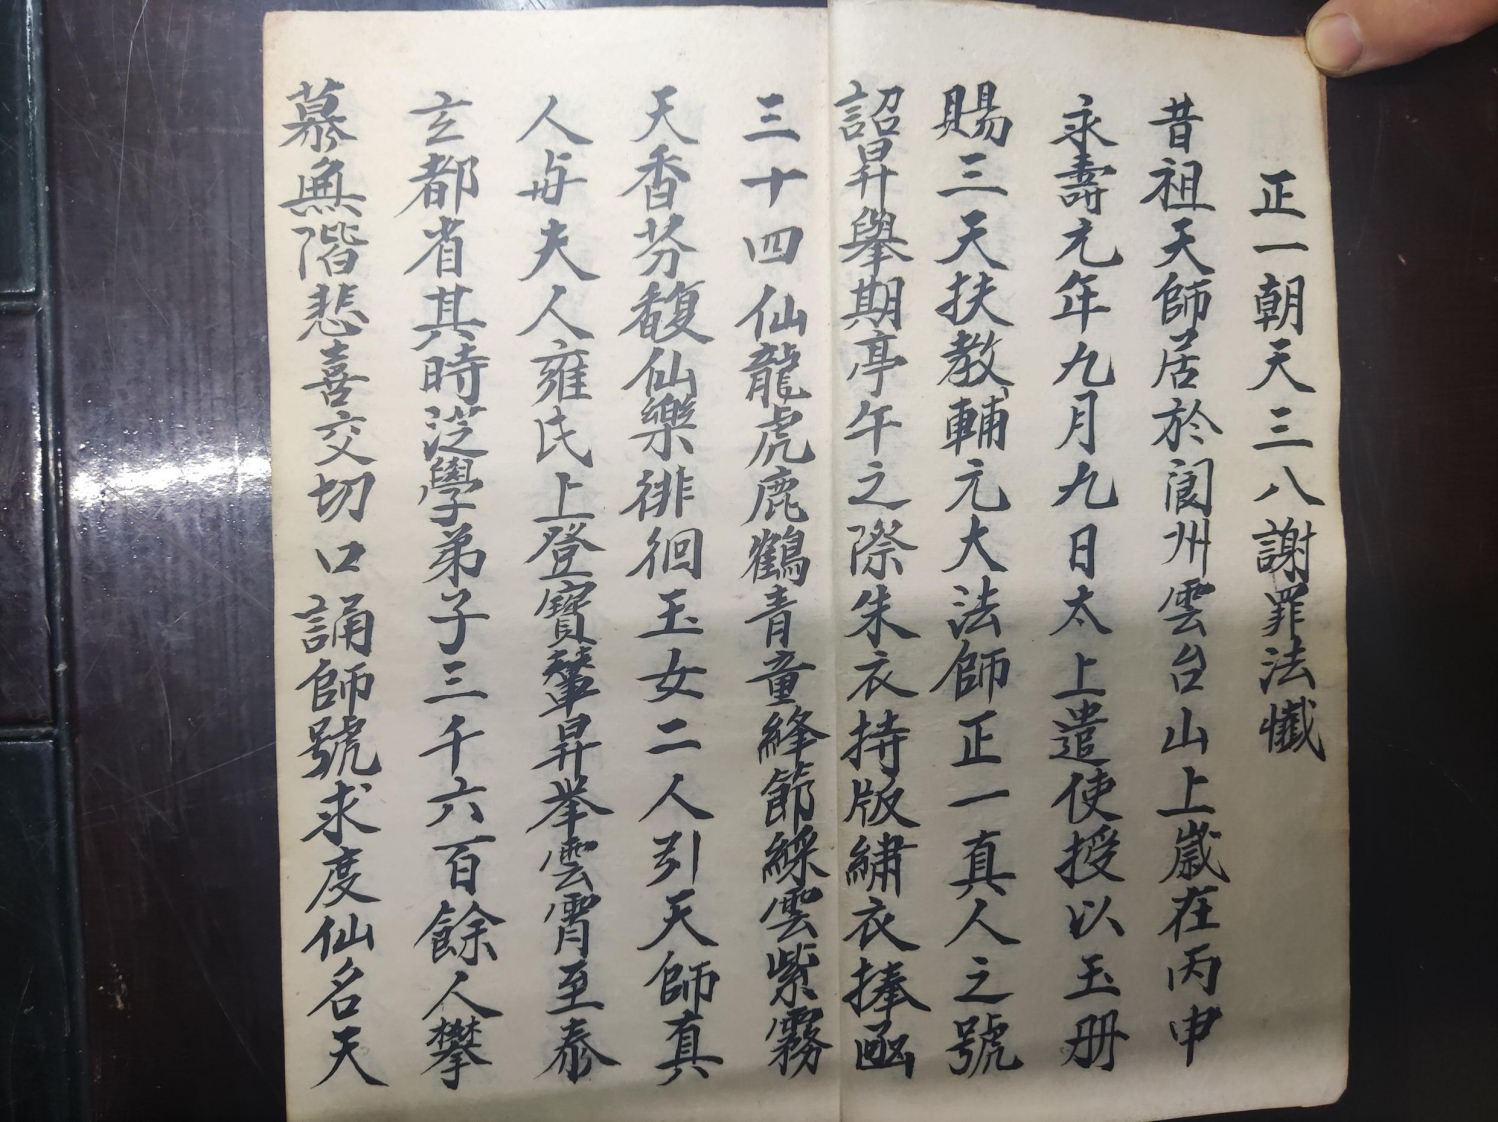 正一朝天三八謝罪法懺
昔祖天師居於閬州雲台山上歲在丙申
永壽元年九月九日太上遣使授以玉册
賜三天扶教輔元大法師正一真人之號
詔昇舉期亭午之際朱衣持版繡衣捧函
三十四仙龍虎鹿鶴青童絳節綵雲紫霧
天香芬馥仙樂徘徊玉女二人引天師真
人与夫人雍氏上登寶輦昇举雲霄至泰
玄都省其時泛學弟子三千六百餘人攀
慕無階悲喜交切口誦師號求度仙名天